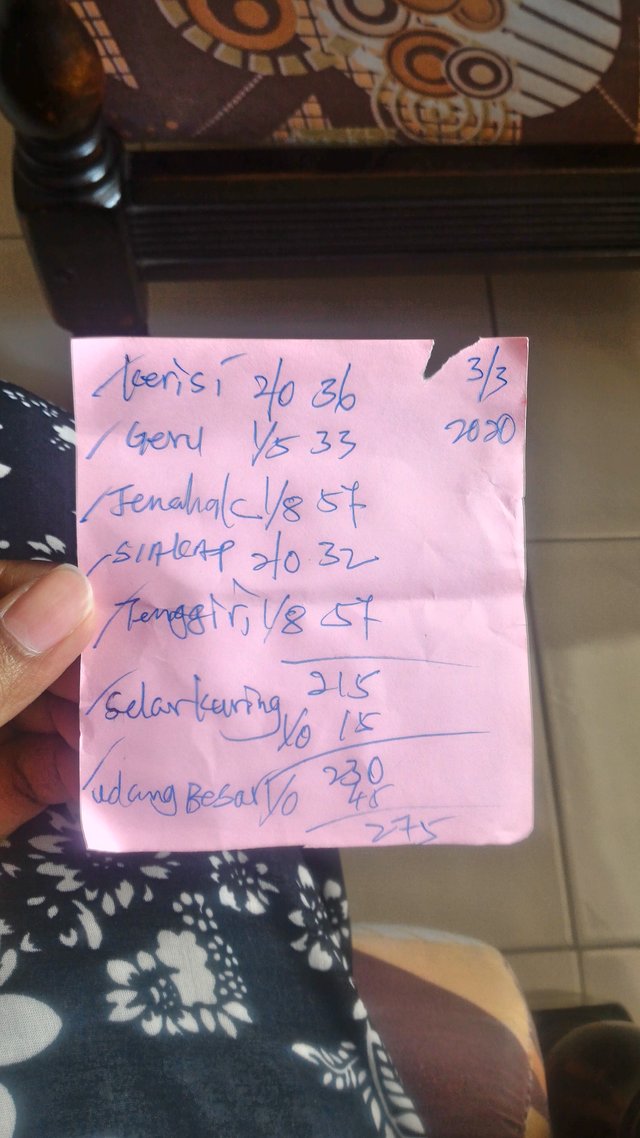 Kerisi 2/0 36 3/3
Geru 1/5 33 2020
Jenahak 1/8 57
SIAKAP 2/0 32
Tenggiri 1/8 57
215
Selar kuning
1/0 15
230
udang Besar 1/0 45
275